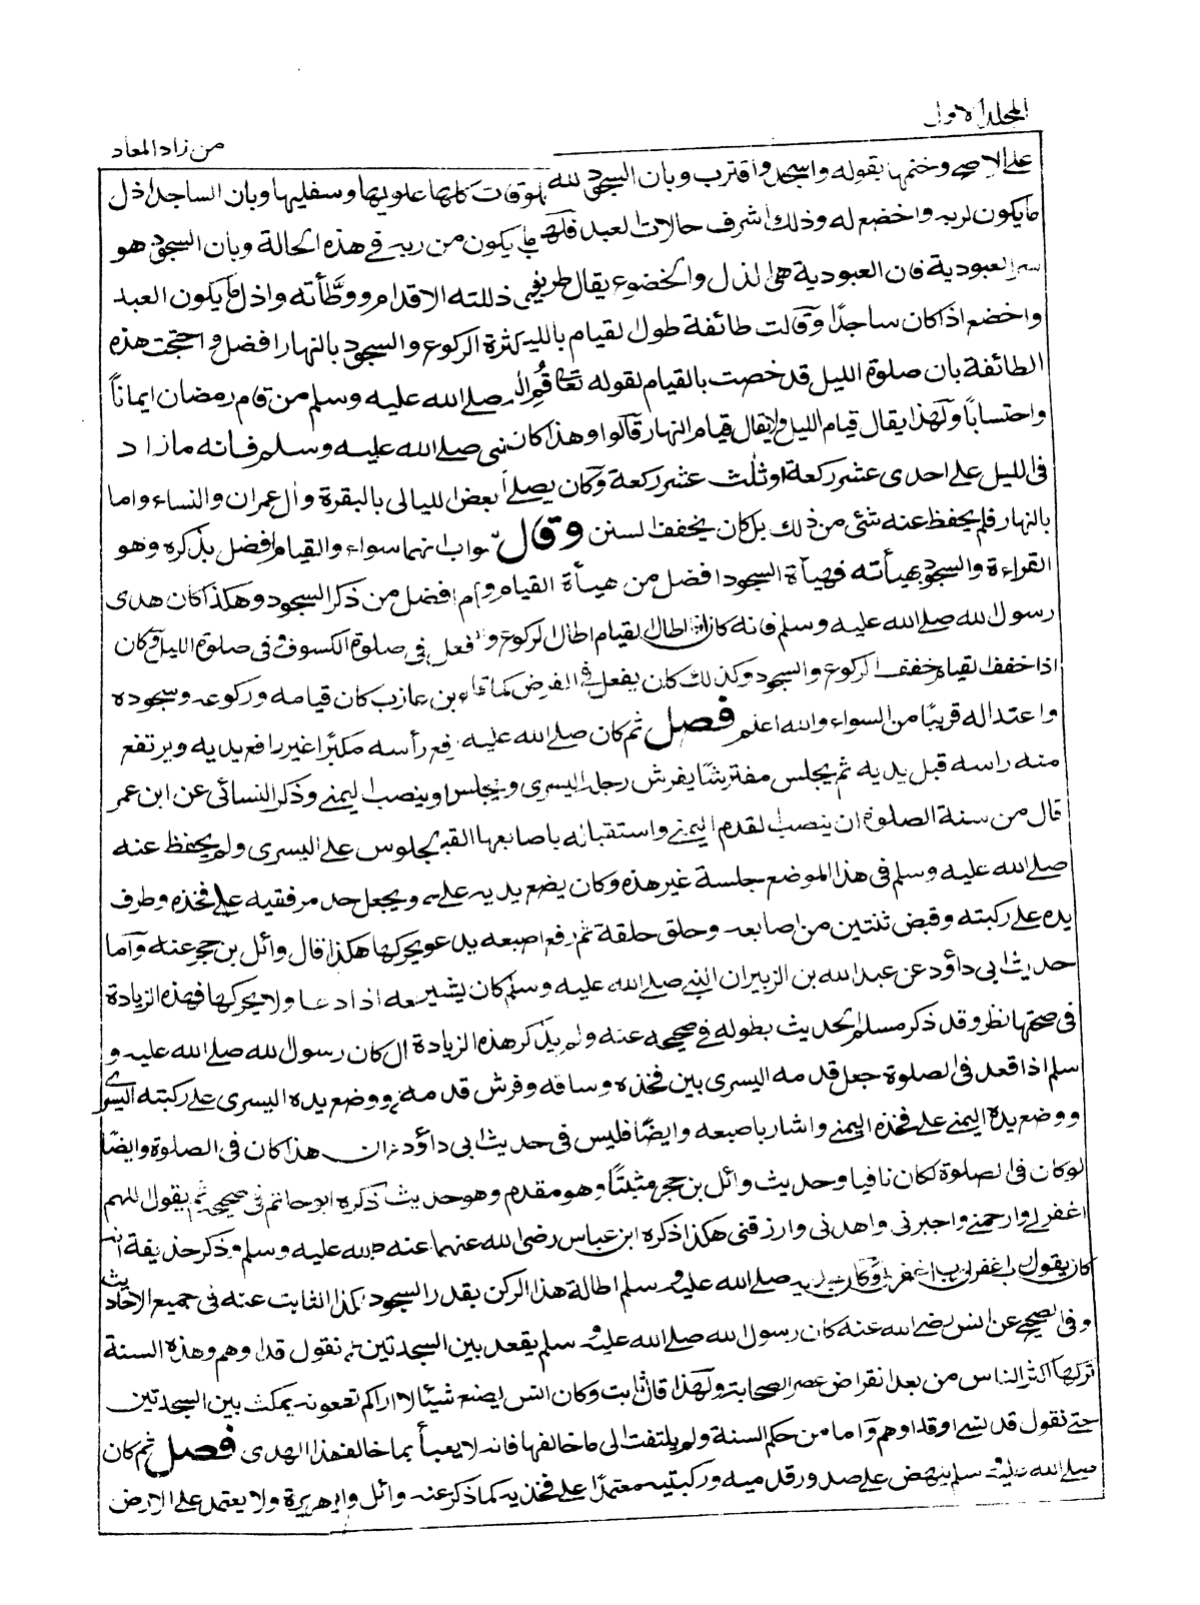 المجلد الاول
من زاد المعاد
على الاصح وختمها بقوله واسجد واقترب وبان السجود لله كلها علويها وسفليها وبان الساجد اذل
ما يكون لربه واخضع له وذلك اشرف حالات العبد فلهذا يكون من ربه فى هذه الحالة وبان السجود هو
سر العبودية فان العبودية هى الذل والخضوع يقال طريق ذللته الاقدام ووطّأته واذل ما يكون العبد
واخضع اذا كان ساجدًا وقالت طائفة طول القيام بالليل كثرة الركوع والسجود بالنهار افضل واحتجت هذه
الطائفة بان صلوة الليل قد خصت بالقيام لقوله تعا قُمِ صلى الله عليه وسلم من قام رمضان ايمانًا
واحتسابًا ولهذا يقال قيام الليل ولا يقال قيام النهار قالوا وهذا كان نبى صلى الله عليه وسلم فانه ما زا د
فى الليل على احدى عشر ركعة او ثلث عشر ركعة وكان يصلى بعض الليالى بالبقرة وال عمران والنساء واما
بالنهار فلم يحفظ عنه شئ من ذلك بل كان يخفف السنن وقال انهما سواء والقيام افضل بذكره وهو
القراءة والسجود بهيأته فهيأة السجود افضل من هيأة القيام و افضل من ذكر السجود وهكذا كان هدى
رسول الله صلى الله عليه وسلم فانه كان اذا اطال القيام اطال الركوع و فعل فى صلوة الكسوف وفى صلوة الليل وكان
اذا خفف القيام خفف الركوع والسجود وكذلك كان يفعل فى الفرض كما بن عازب كان قيامه وركوعه وسجوده
واعتداله قريبًا من السواء والله اعلم فصل ثم كان صلى الله عليه فع رأسه مكبرًا غير رافع يديه ويرتفع
منه راسه قبل يديه ثم يجلس مفترشًا يفرش رجله اليسرى ويجلس وينصب اليمنى وذكر النسائى عن ابن عمر
قال من سنة الصلوة ان ينصب القدم اليمنى واستقباله باصابعها القبـ لجلوس على اليسرى ولم يحفظ عنه
صلى الله عليه وسلم فى هذا الموضع جلسة غير هذه وكان يضع يديه على ويجعل حد مرفقيه على فخذه وطرف
يده على ركبته وقبض ثنتين من اصابعه وحلق حلقة ثم رفع اصبعه يدعو يحركها هكذا قال وائل بن حجر عنه واما
حديث ابى داؤد عن عبد الله بن الزبير ان النبى صلى الله عليه وسلم كان يشير عه اذا دعا ولا يحركها فهذه الزيادة
فى صحتها نظر وقد ذكر مسلم الحديث بطوله فى صحيحه عنه ولم يذكر هذه الزيادة ال كان رسول الله صلى الله عليه و
سلم اذا قعد فى الصلوة جعل قدمه اليسرى بين فخذه وساقه وفرش قدمه ووضع يده اليسرى على ركبته اليسرى
ووضع يده اليمنى على فخذه اليمنى واشار باصبعه وايضًا فليس فى حديث ابى داؤد ان هذا كان فى الصلوة وايضًا
لو كان فى الصلوة لكان نافيا وحديث وائل بن حجر مثبتًا وهو مقدم وهو حديث ذكره ابو حاتم فى صحيحه ثم يقول اللهم
اغفر لى وارحمنى واجبرنى واهدنى وارزقنى هكذا ذكره ابن عباس رضى الله عنهما عنه صلى الله عليه وسلم وذكر حذيفة انه
كان يقول رب اغفر لى رب اغفر لى وكان صلى الله عليه وسلم اطالة هذا الركن بقدر السجود الثابت عنه فى جميع الاحاديث
وفى الصحيح عن انس رضى الله عنه كان رسول الله صلى الله عليه وسلم يقعد بين السجدتين حتى نقول قد اوهم وهذه السنة
تركها اكثر الناس من بعد انقراض عصر الصحابة ولهذا قال ثابت وكان انس يصنع شيئًا لا اراكم تصنعونه يمكث بين السجدتين
حتى نقول قد نسى او قد اوهم واما من حكم السنة ولم يلتفت الى ما خالفها فانه لا يعبأ بما خالف هذا الهدى فصل ثم كان
صلى الله عليه وسلم ينهض على صدور قدميه وركبتيه معتمدًا على فخذيه كما ذكر عنه وائل وابو هريرة ولا يعتمد على الارض